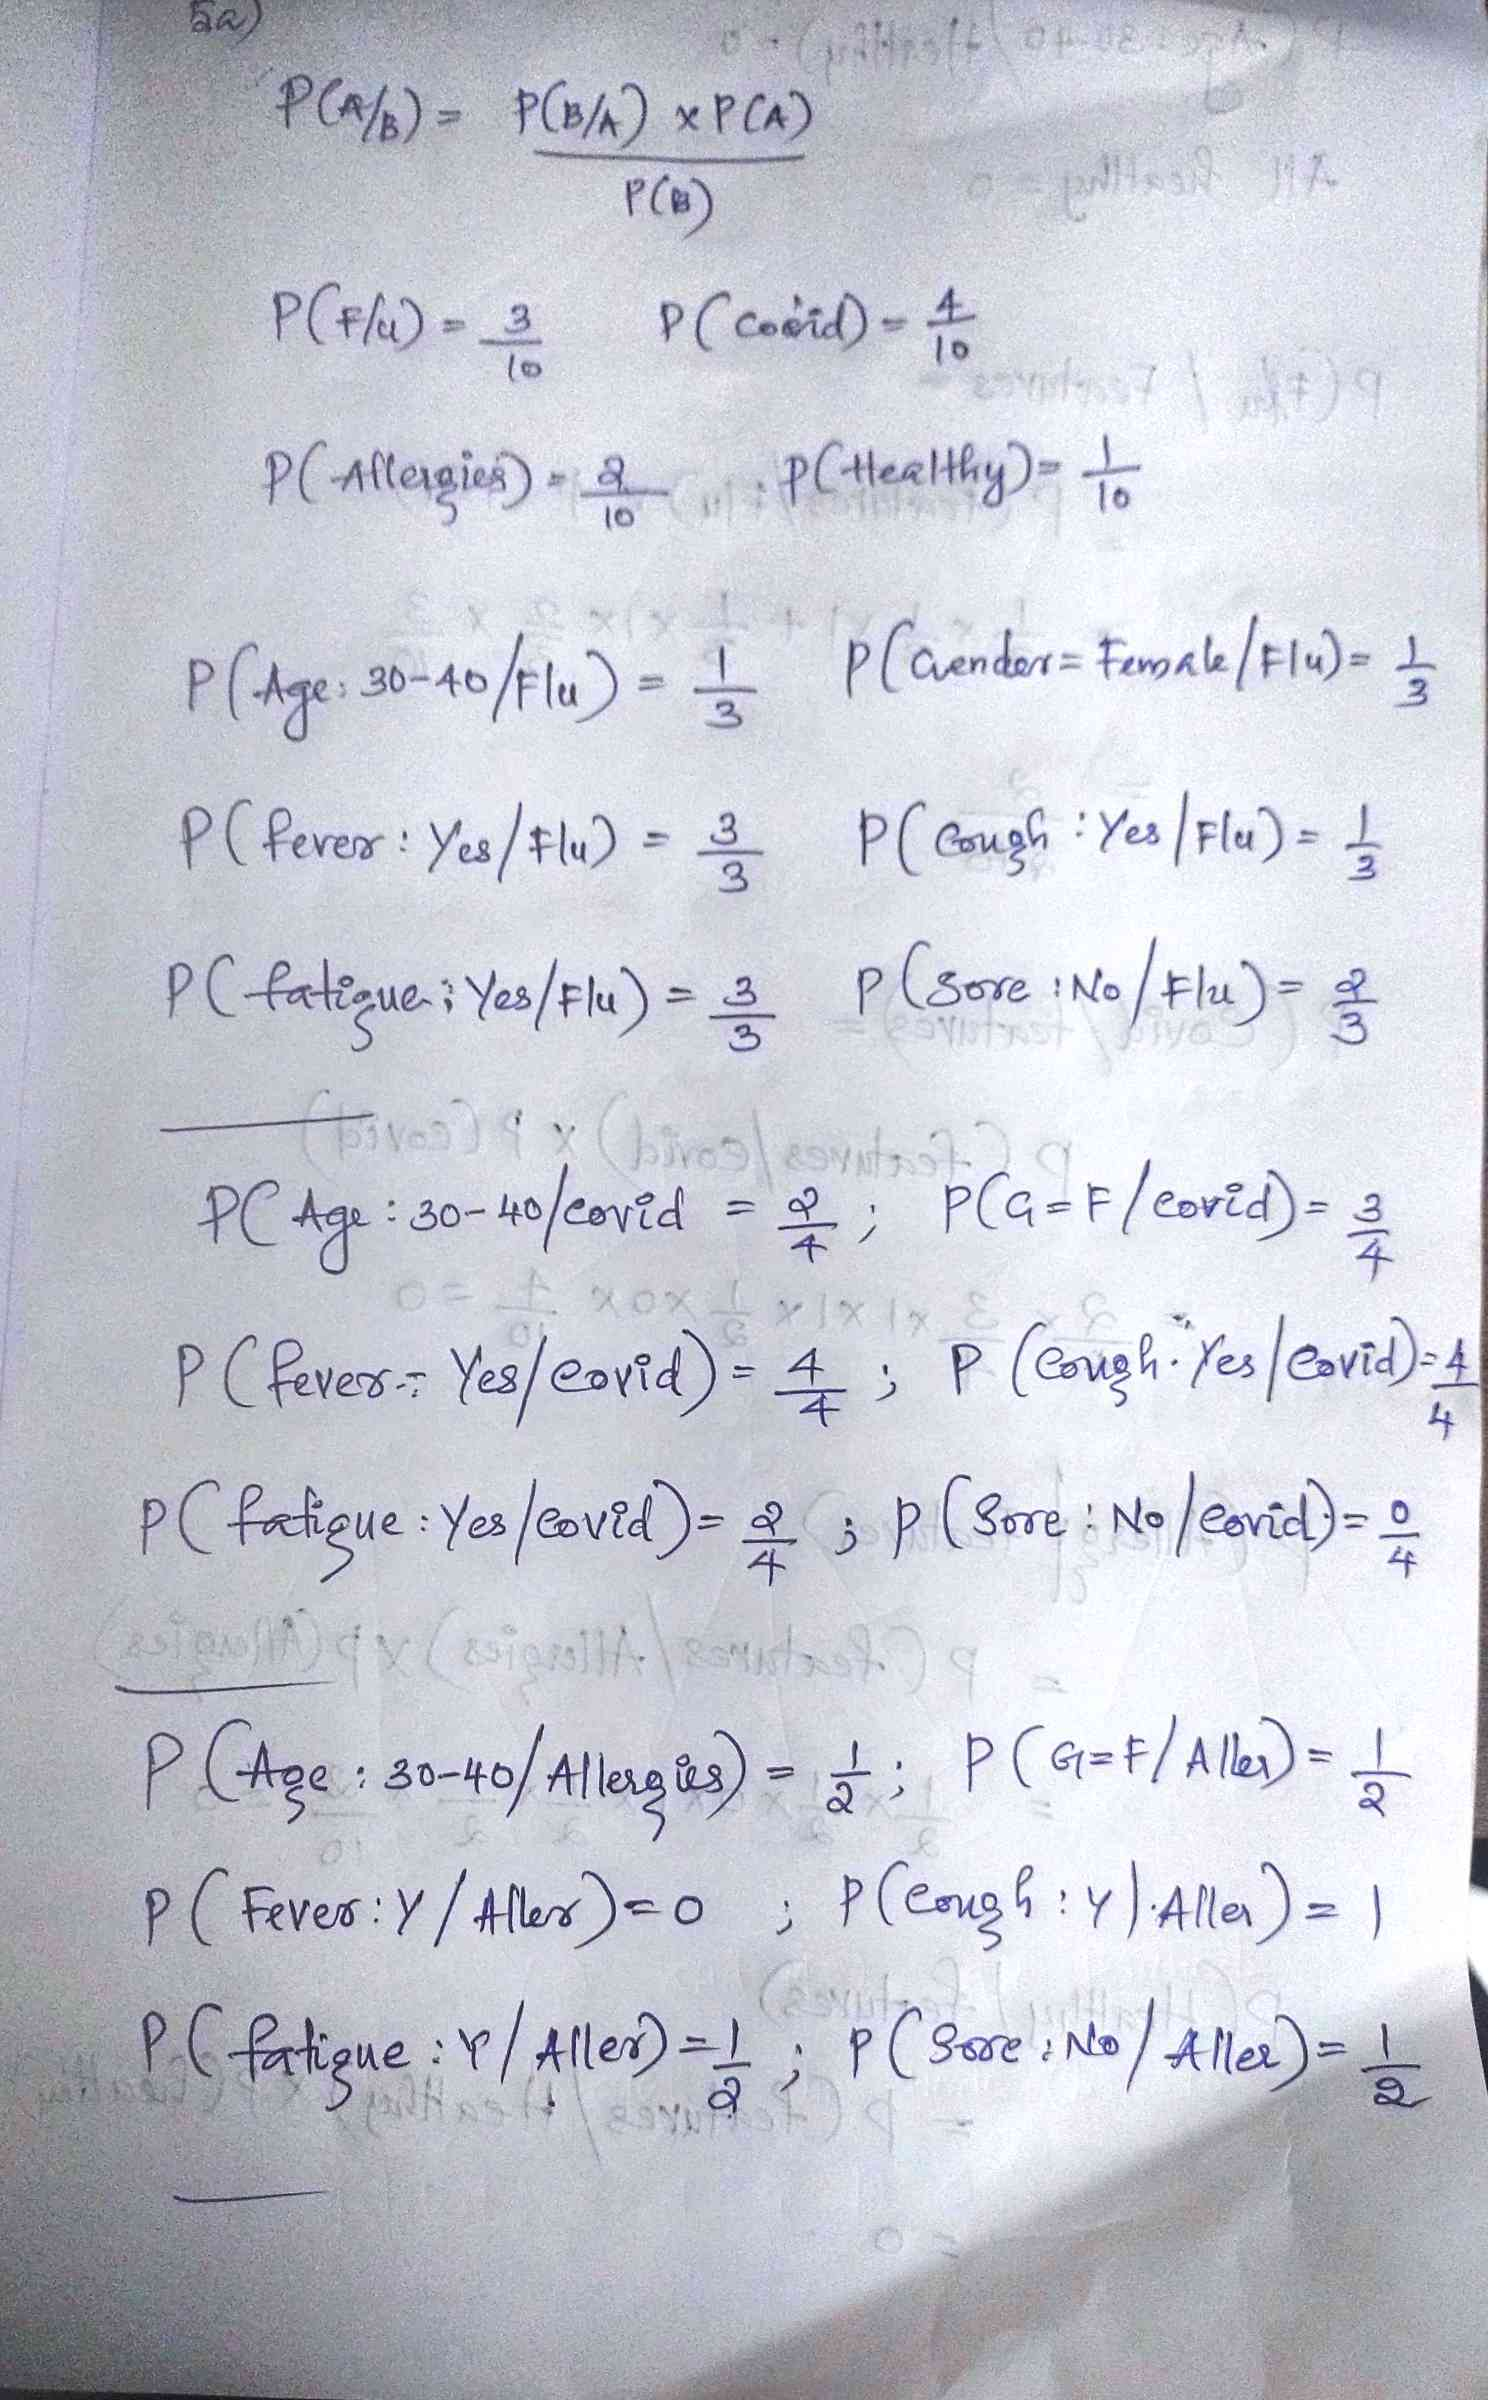 5a)
P(A/B) = P(B/A) x P(A)
P(B)
P(Flu) = 3/10 P(Covid) = 4/10
P(Allergies) = 2/10 P(Healthy) = 1/10
P(Age: 30-40/Flu) = 1/3 P(Gender = Female/Flu) = 1/3
P(fever: Yes/Flu) = 3/3 P(Cough: Yes/Flu) = 1/3
P(fatigue: Yes/Flu) = 3/3 P(Sore: No/Flu) = 2/3
P(Age: 30-40/covid = 2/4 ; P(G=F/covid) = 3/4
P(fever = Yes/covid) = 4/4 ; P(Cough: Yes/Covid) = 4/4
P(fatigue: Yes/covid) = 2/4 ; P(Sore: No/covid) = 0/4
P(Age: 30-40/Allergies) = 1/2 ; P(G=F/Aller) = 1/2
P(Fever: Y/Aller) = 0 ; P(Cough: Y/Aller) = 1
P(fatigue: Y/Aller) = 1/2 ; P(Sore: No/Aller) = 1/2